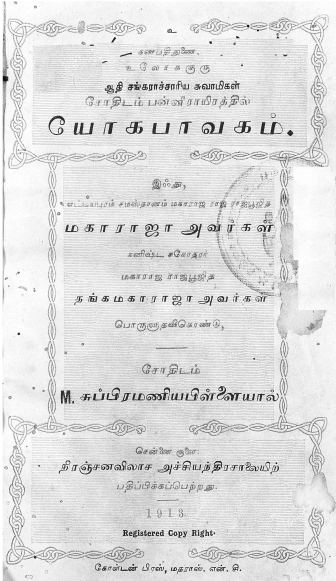 உ
கணபதிதுணை.
உலோககுரு
ஆதி சங்கராச்சாரிய சுவாமிகள்
சோதிடம் பன்னீராயிரத்தில்
யோகபாவகம்.
இஃது,
எட்டயாபுரம் சமஸ்தானம் மகாராஜ ராஜ ராஜபூஜித
மகாராஜா அவர்கள்
கனிஷ்ட சகோதரர்
மகாராஜ ராஜபூஜித
தங்கமகாராஜா அவர்கள்
பொருளுதவிகொண்டு,
சோதிடம்
M. சுப்பிரமணியபிள்ளையால்
சென்னை சூளை:
நிரஞ்சனவிலாச அச்சியந்திரசாலையிற்
பதிப்பிக்கப்பெற்றது.
1913
Registered Copy Right.
கோல்டன் பிரஸ், மதராஸ். என். சி.